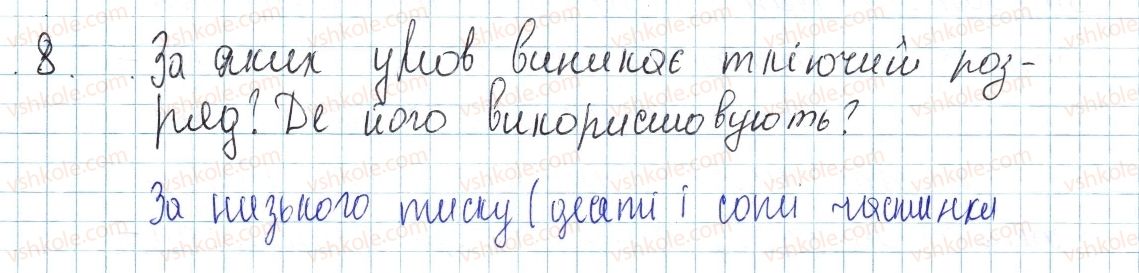 8. За яких умов виникає тліючий роз-
ряд? Де його використовують?
За низького тиску (десяті і соті частинки